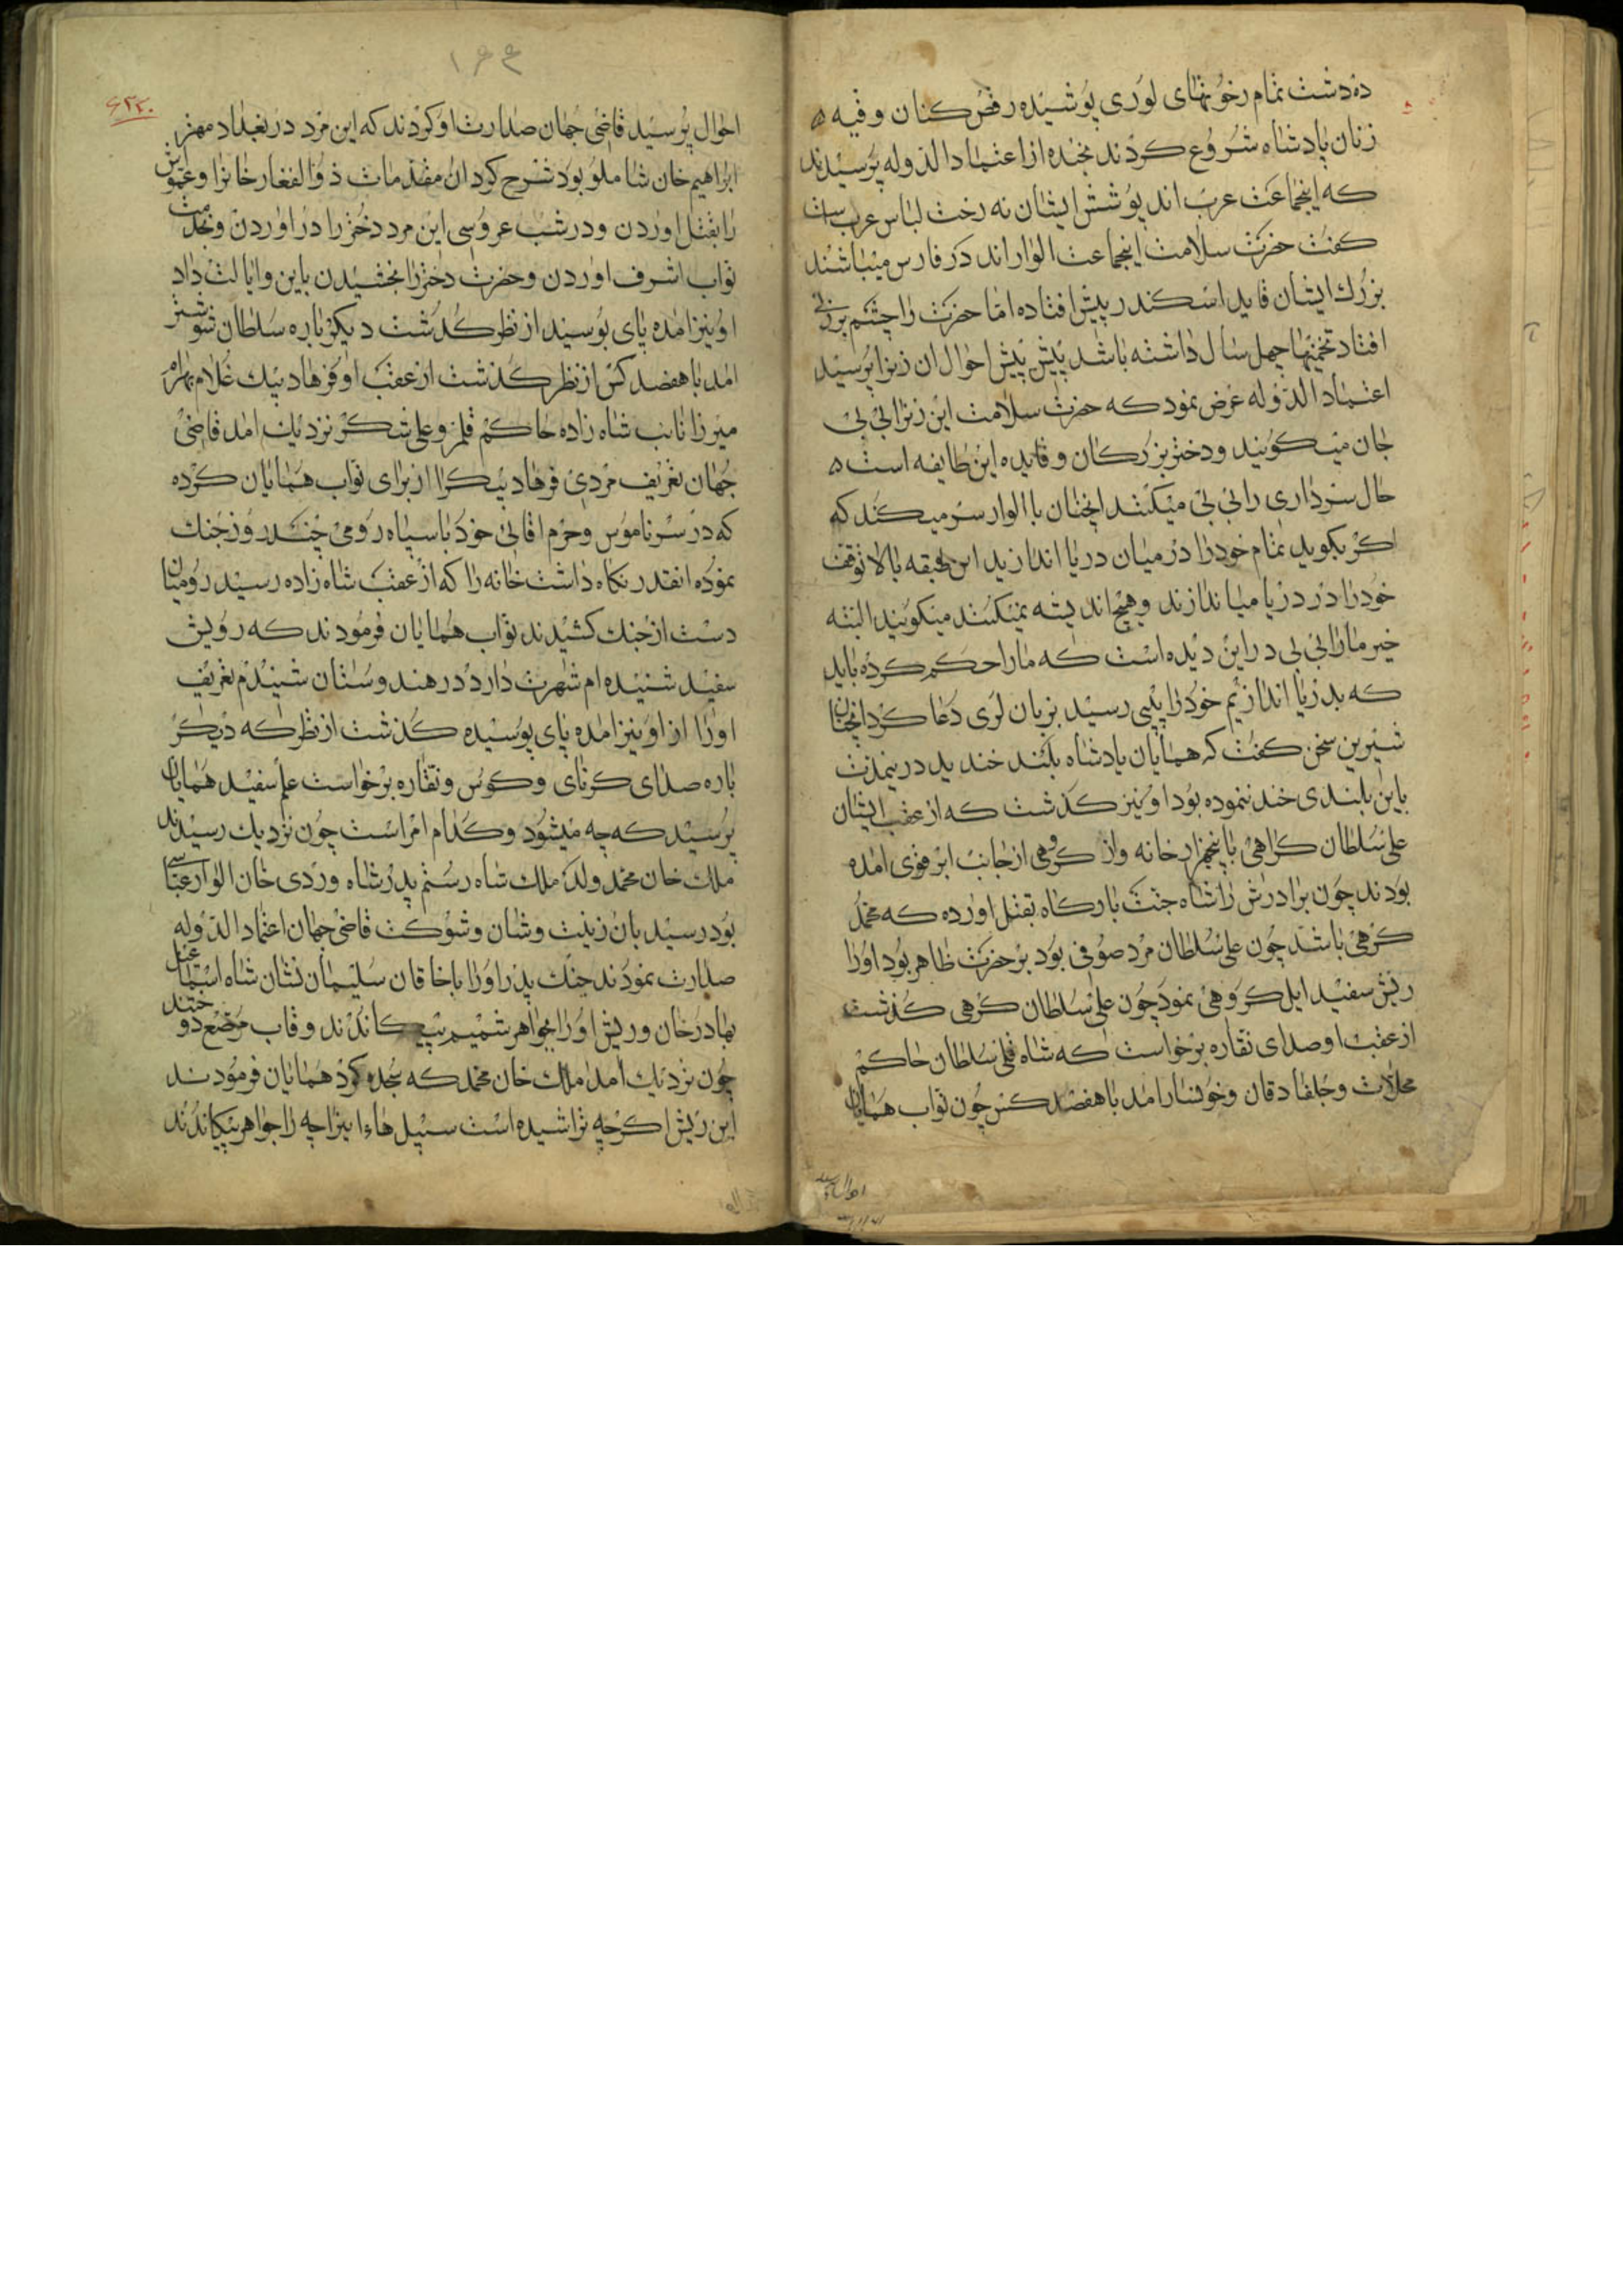 ده دشت تمام رخوتهای لوری پوشیده رقص کنان وقیه
زنان پادشاه شروع کردند بخنده از اعتماد الدوله پرسیدند
که اینجماعت عرب اند پوشش ایشان نه رخت لباس عرب است
کفت حضرت سلامت اینجماعت الوار اند در فارس میباشند
بزرک ایشان قاید اسکندر پیش افتاده اما حضرت را چشم بر زنی
افتاد تخمینها چهل سال داشته باشد پیش پیش احوال ان زنرا پرسید
اعتماد الدوله عرض نمود که حضرت سلامت این زنرا بی بی
جان میکویند و دختر بزرکان و قایده این طایفه است
حال سرداری را بی بی میکنند انچنان با الوار سر میکند که
اکر بکوید تمام خود را در میان دریا اندازید این طبقه بالا توقف
خود را در دریا میاندازند و هیچ اندیشه نمیکنند میکویند البته
خیر ما را بی بی در این دیده است که ما را حکم کرده باید
که بدریا اندازیم خود را پیی رسید بزبان لری دعا کرد انچنان
شیرین سخن کفت که همایان پادشاه بلند خندید در ینمدت
باین بلندی خند ننموده بود او نیز کذشت که از عقب ایشان
علی سلطان کراهی با پنجهزار خانه واز کروهی از جانب ابرقوی امده
بودند چون برادرش را شاه جنت بارکاه بقتل اورده که محمد
کرهی باشد چون علی سلطان مرد صوفی بود بر حضرت ظاهر بود او را
ریش سفید ایل کروهی نمود چون علی سلطان کرهی کذشت
از عقب او صدای نقاره برخواست که شاه قلی سلطان حاکم
محلات و جلفادقان و خونسار امد با هفصد کس چون نواب همایان
احوال پرسید
۱۶۴
۶۳۳۰
احوال پرسید قاضی جهان صدارت او کردند که این مرد در بغداد مهتر
ابراهیم خان شاملو بود شرح کرد ان مقدمات ذو الفغار خانرا و عمویش
را بقتل اوردن و در شب عروسی این مرد دختر را در اوردن و بخدمت
نواب اشرف اوردن و حضرت دختر را بخشیدن باین و ایالت داد
او نیز امده پای بوسیند از نظر کذشت دیکر باره سلطان شوشتر
امد با هفصد کس از نظر کذشت از عقب او فرهاد بیک غلام بهرام
میرزا نایب شاه زاده حاکم قلمرو علی شکر نزدیک امد قاضی
جهان تعریف مردی فرهاد بیک را از برای نواب همایان کرده
که در سر ناموس و حرم اقای خود با سپاه رومی چند روز جنک
نموده انقدر نکاه داشت خانه را که از عقب شاه زاده رسید رومیان
دست از جنک کشیدند نواب همایان فرمودند که رویش
سفید شنیده ام شهرت دارد در هندوستان شنیدم تعریف
او را از او نیز امده پای بوسیده کذشت از نظر که دیکر
باره صدای کرنای و کوس و نقاره برخواست علم سفید همایان
پرسید که چه میشود و کدام امر است چون نزدیک رسیدند
ملک خان محمد ولد ملک شاه رستم پدر شاه وردی خان الوار عباسی
بود رسید بان زینت و شان و شوکت قاضی جهان اعتماد الدوله
صدارت نمودند جنک پدر او را با خاقان سلیمان نشان شاه اسمعیل
بهادر خان و ریش او را بجواهر شمیم پیچکاندند و قاب مرصع دوختند
چون نزدیک امد ملک خان محمد که سجده کرد همایان فرمودند
این ریش اکرچه تراشیده است سبیل هاء اینرا چه را جواهر نپیکاندند